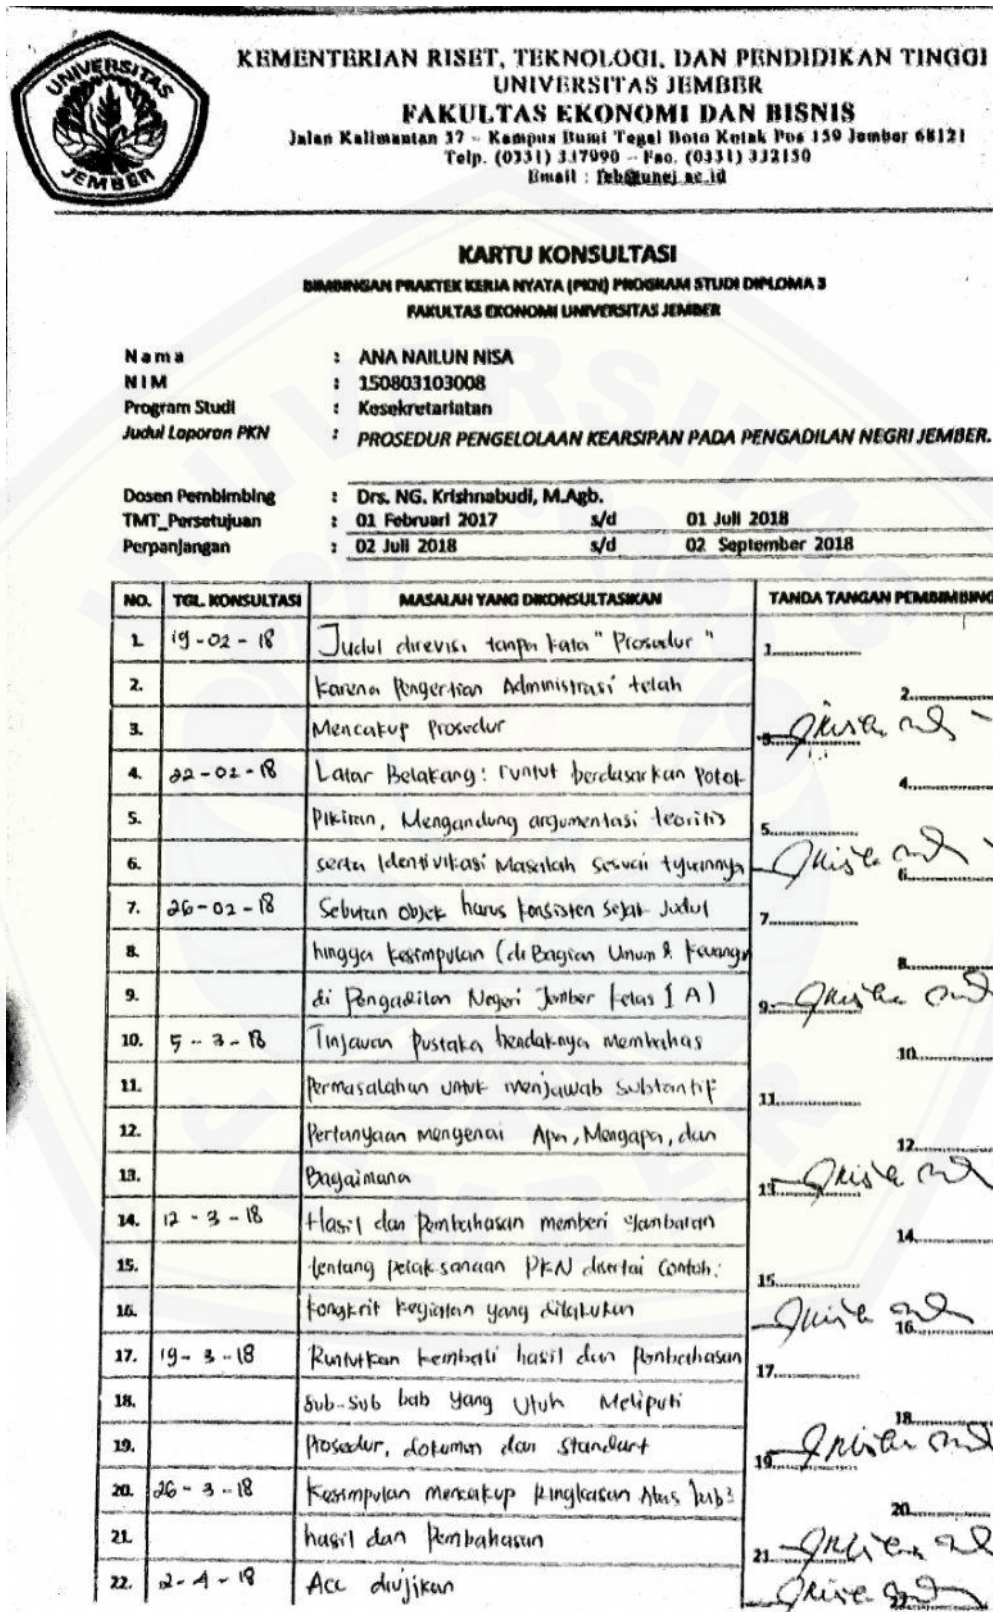 UNIVERSITAS
JEMBER
KEMENTERIAN RISET, TEKNOLOGI, DAN PENDIDIKAN TINGGI
UNIVERSITAS JEMBER
FAKULTAS EKONOMI DAN BISNIS
Jalan Kalimantan 37 – Kampus Bumi Tegal Boto Kotak Pos 159 Jember 68121
Telp. (0331) 337990 – Fac. (0331) 332150
Email : feb@unej.ac.id
KARTU KONSULTASI
BIMBINGAN PRAKTEK KERJA NYATA (PKN) PROGRAM STUDI DIPLOMA 3
FAKULTAS EKONOMI UNIVERSITAS JEMBER
Nama : ANA NAILUN NISA
NIM : 150803103008
Program Studi : Kesekretariatan
Judul Laporan PKN : PROSEDUR PENGELOLAAN KEARSIPAN PADA PENGADILAN NEGRI JEMBER.
Dosen Pembimbing : Drs. NG. Krishnabudi, M.Agb.
TMT_Persetujuan : 01 Februari 2017 s/d 01 Juli 2018
Perpanjangan : 02 Juli 2018 s/d 02 September 2018
NO. TGL. KONSULTASI MASALAH YANG DIKONSULTASIKAN TANDA TANGAN PEMBIMBING
1. 19-02-18 Judul direvisi tanpa kata "Prosedur" 1.
2. karena Pengertian Administrasi telah 2.
3. Mencakup Prosedur 3.
4. 22-02-18 Latar Belakang: runtut berdasarkan Pokok 4.
5. Pikiran, Mengandung argumentasi teoritis 5.
6. serta Identivikasi Masalah sesuai tujuannya 6.
7. 26-02-18 Sebutan objek harus konsisten sejak Judul 7.
8. hingga kesimpulan (di Bagian Umum & 8.
9. di Pengadilan Negeri Jember kelas 1 A) 9.
10. 5-3-18 Tinjauan Pustaka hendaknya membahas 10.
11. Permasalahan untuk menjawab substantif 11.
12. Pertanyaan mengenai Apa, Mengapa, dan 12.
13. Bagaimana 13.
14. 12-3-18 Hasil dan Pembahasan memberi gambaran 14.
15. tentang pelaksanaan PKN disertai Contoh: 15.
16. kongkrit kegiatan yang dilakukan 16.
17. 19-3-18 Runtutkan kembali hasil dan pembahasan 17.
18. Sub-Sub bab yang Utuh Meliputi 18.
19. Prosedur, dokumen dan standart 19.
20. 26-3-18 Kesimpulan mencakup Ringkasan Atas 20.
21. hasil dan Pembahasan 21.
22. 2-4-18 Acc diujikan 22.